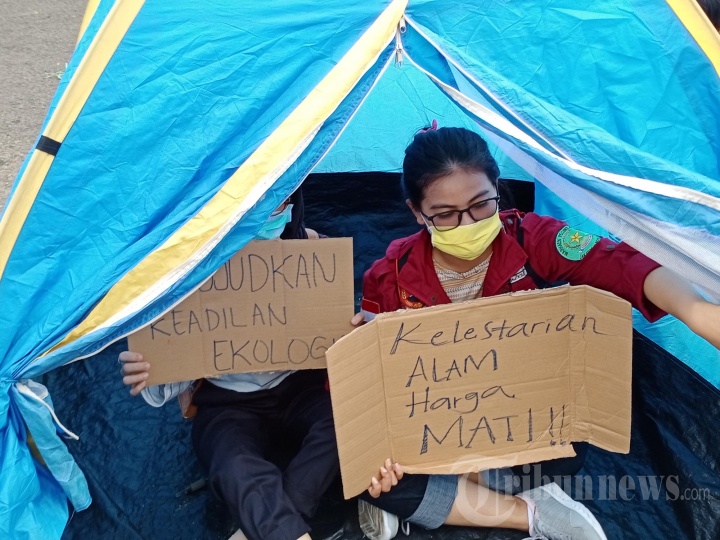 UDKAN
KEADILAN
EKOLOGI
Kelestarian
ALAM
Harga
MATI!!
Tribunnews.com